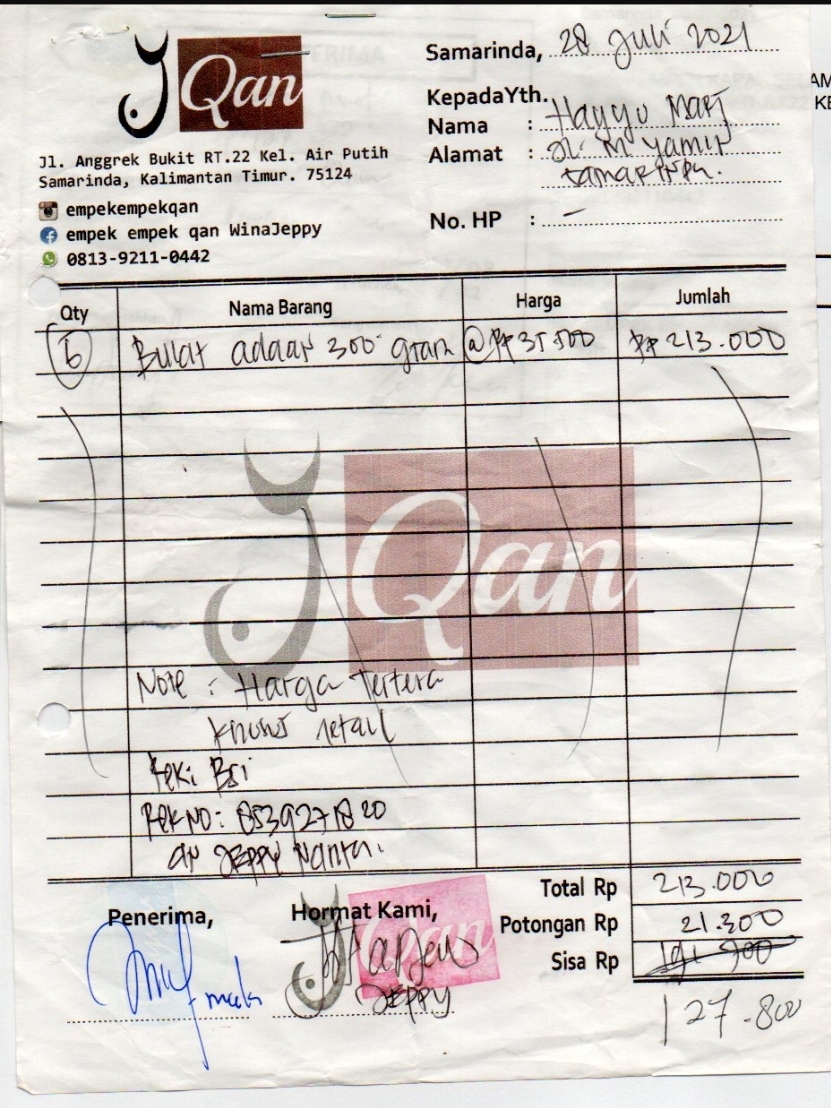 J Qan
Jl. Anggrek Bukit RT.22 Kel. Air Putih
Samarinda, Kalimantan Timur. 75124
empekempekqan
empek empek qan WinaJeppy
0813-9211-0442
Samarinda, 28 Juli 2021
KepadaYth.
Nama : Hayyu Mart
Alamat : Jl. M yamin
samarinda.
No. HP : -
Qty Nama Barang Harga Jumlah
6 Bulat adaan 300 gram @ Rp 35.500 Rp 213.000
J Qan
Note : Harga Tertera
khusus retail
Rek: BSI
Rek NO: 8539271820
an JEPPY Nanta.
Total Rp 213.000
Potongan Rp 21.300
Sisa Rp 191 700
127.800
Penerima, Hormat Kami,
Qan
JEPPY